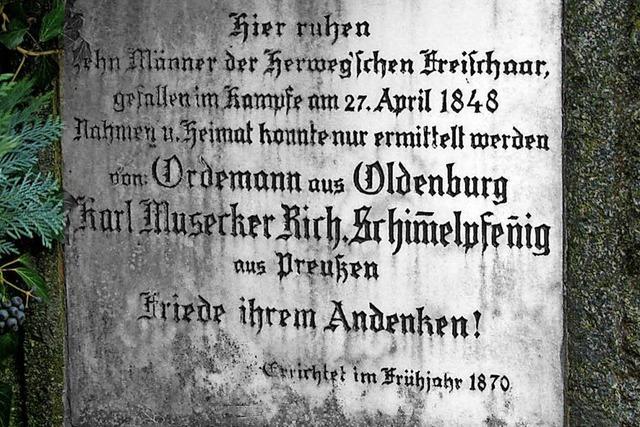 Hier ruhen
zehn Männer der Herweg'schen Freischaar,
gefallen im Kampfe am 27. April 1848
Nahmen u. Heimat konnte nur ermittelt werden
von: Ordemann aus Oldenburg
Karl Musecker Rich. Schim̅elpfen̅ig
aus Preußen
Friede ihrem Andenken!
Errichtet im Frühjahr 1870